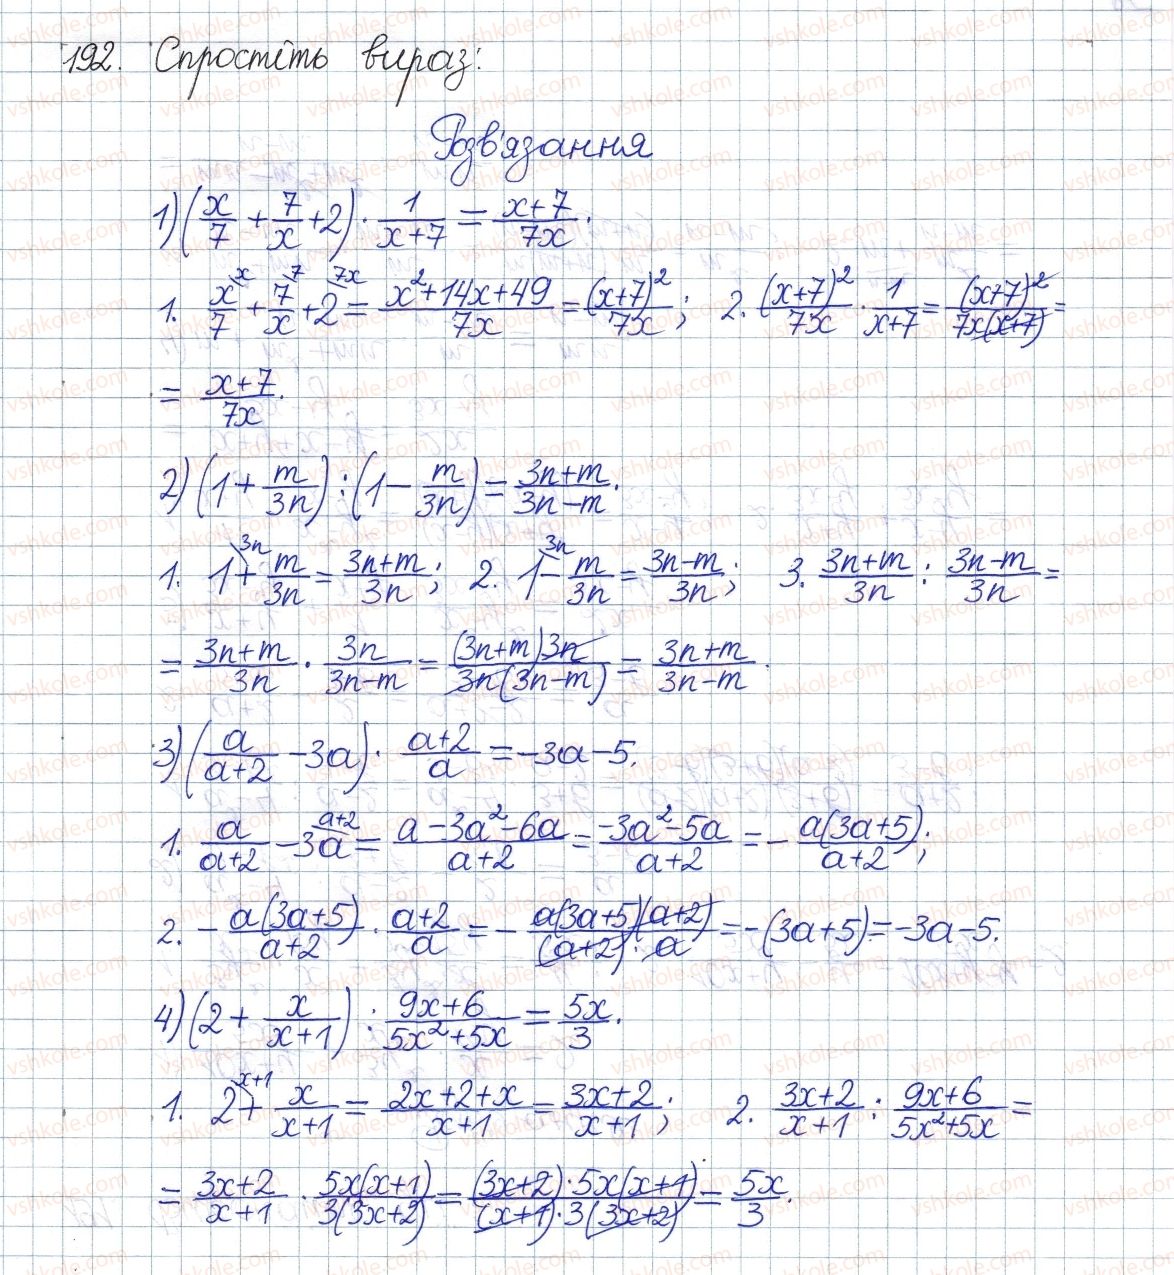 192. Спростіть вираз:
Розв'язання
1) (x/7 + 7/x + 2) · 1/(x+7) = (x+7)/(7x).
1. x/7 + 7/x + 2 = (x²+14x+49)/(7x) = (x+7)²/(7x); 2. (x+7)²/(7x) · 1/(x+7) = (x+7)²/(7x(x+7)) =
= (x+7)/(7x).
2) (1 + m/(3n)) : (1 − m/(3n)) = (3n+m)/(3n−m).
1. 1 + m/(3n) = (3n+m)/(3n); 2. 1 − m/(3n) = (3n−m)/(3n); 3. (3n+m)/(3n) : (3n−m)/(3n) =
= (3n+m)/(3n) · 3n/(3n−m) = ((3n+m)3n)/(3n(3n−m)) = (3n+m)/(3n−m).
3) (a/(a+2) − 3a) · (a+2)/a = −3a−5.
1. a/(a+2) − 3a = (a−3a²−6a)/(a+2) = (−3a²−5a)/(a+2) = − a(3a+5)/(a+2);
2. − a(3a+5)/(a+2) · (a+2)/a = − (a(3a+5)(a+2))/((a+2)·a) = −(3a+5) = −3a−5.
4) (2 + x/(x+1)) : (9x+6)/(5x²+5x) = 5x/3.
1. 2 + x/(x+1) = (2x+2+x)/(x+1) = (3x+2)/(x+1); 2. (3x+2)/(x+1) : (9x+6)/(5x²+5x) =
= (3x+2)/(x+1) · 5x(x+1)/(3(3x+2)) = ((3x+2)·5x(x+1))/((x+1)·3(3x+2)) = 5x/3.